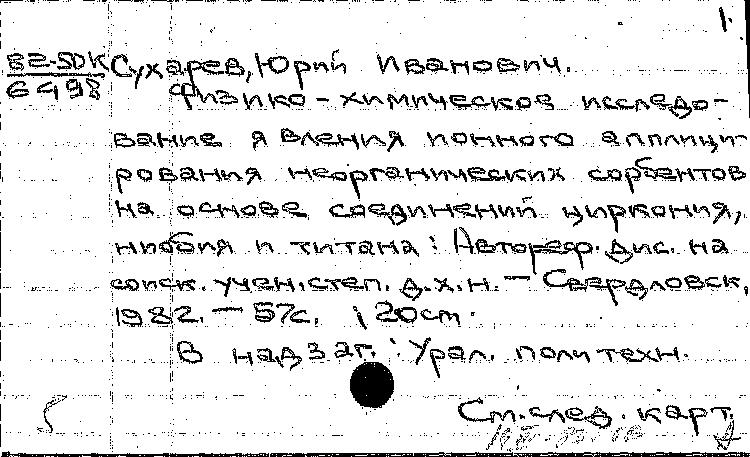 1.
82-5DK Сухарев, Юрий Иванович.
6498 Физико-химическое исследо-
вание явления ионного апплици-
рования неорганических сорбентов
на основе соединений циркония,
ниобия и титана: Автореф. дис. на
соиск. учен. степ. д.х.н. — Свердловск,
1982. — 57с. ; 20см.
В надзаг.: Урал. политехн.
См. след. карт.